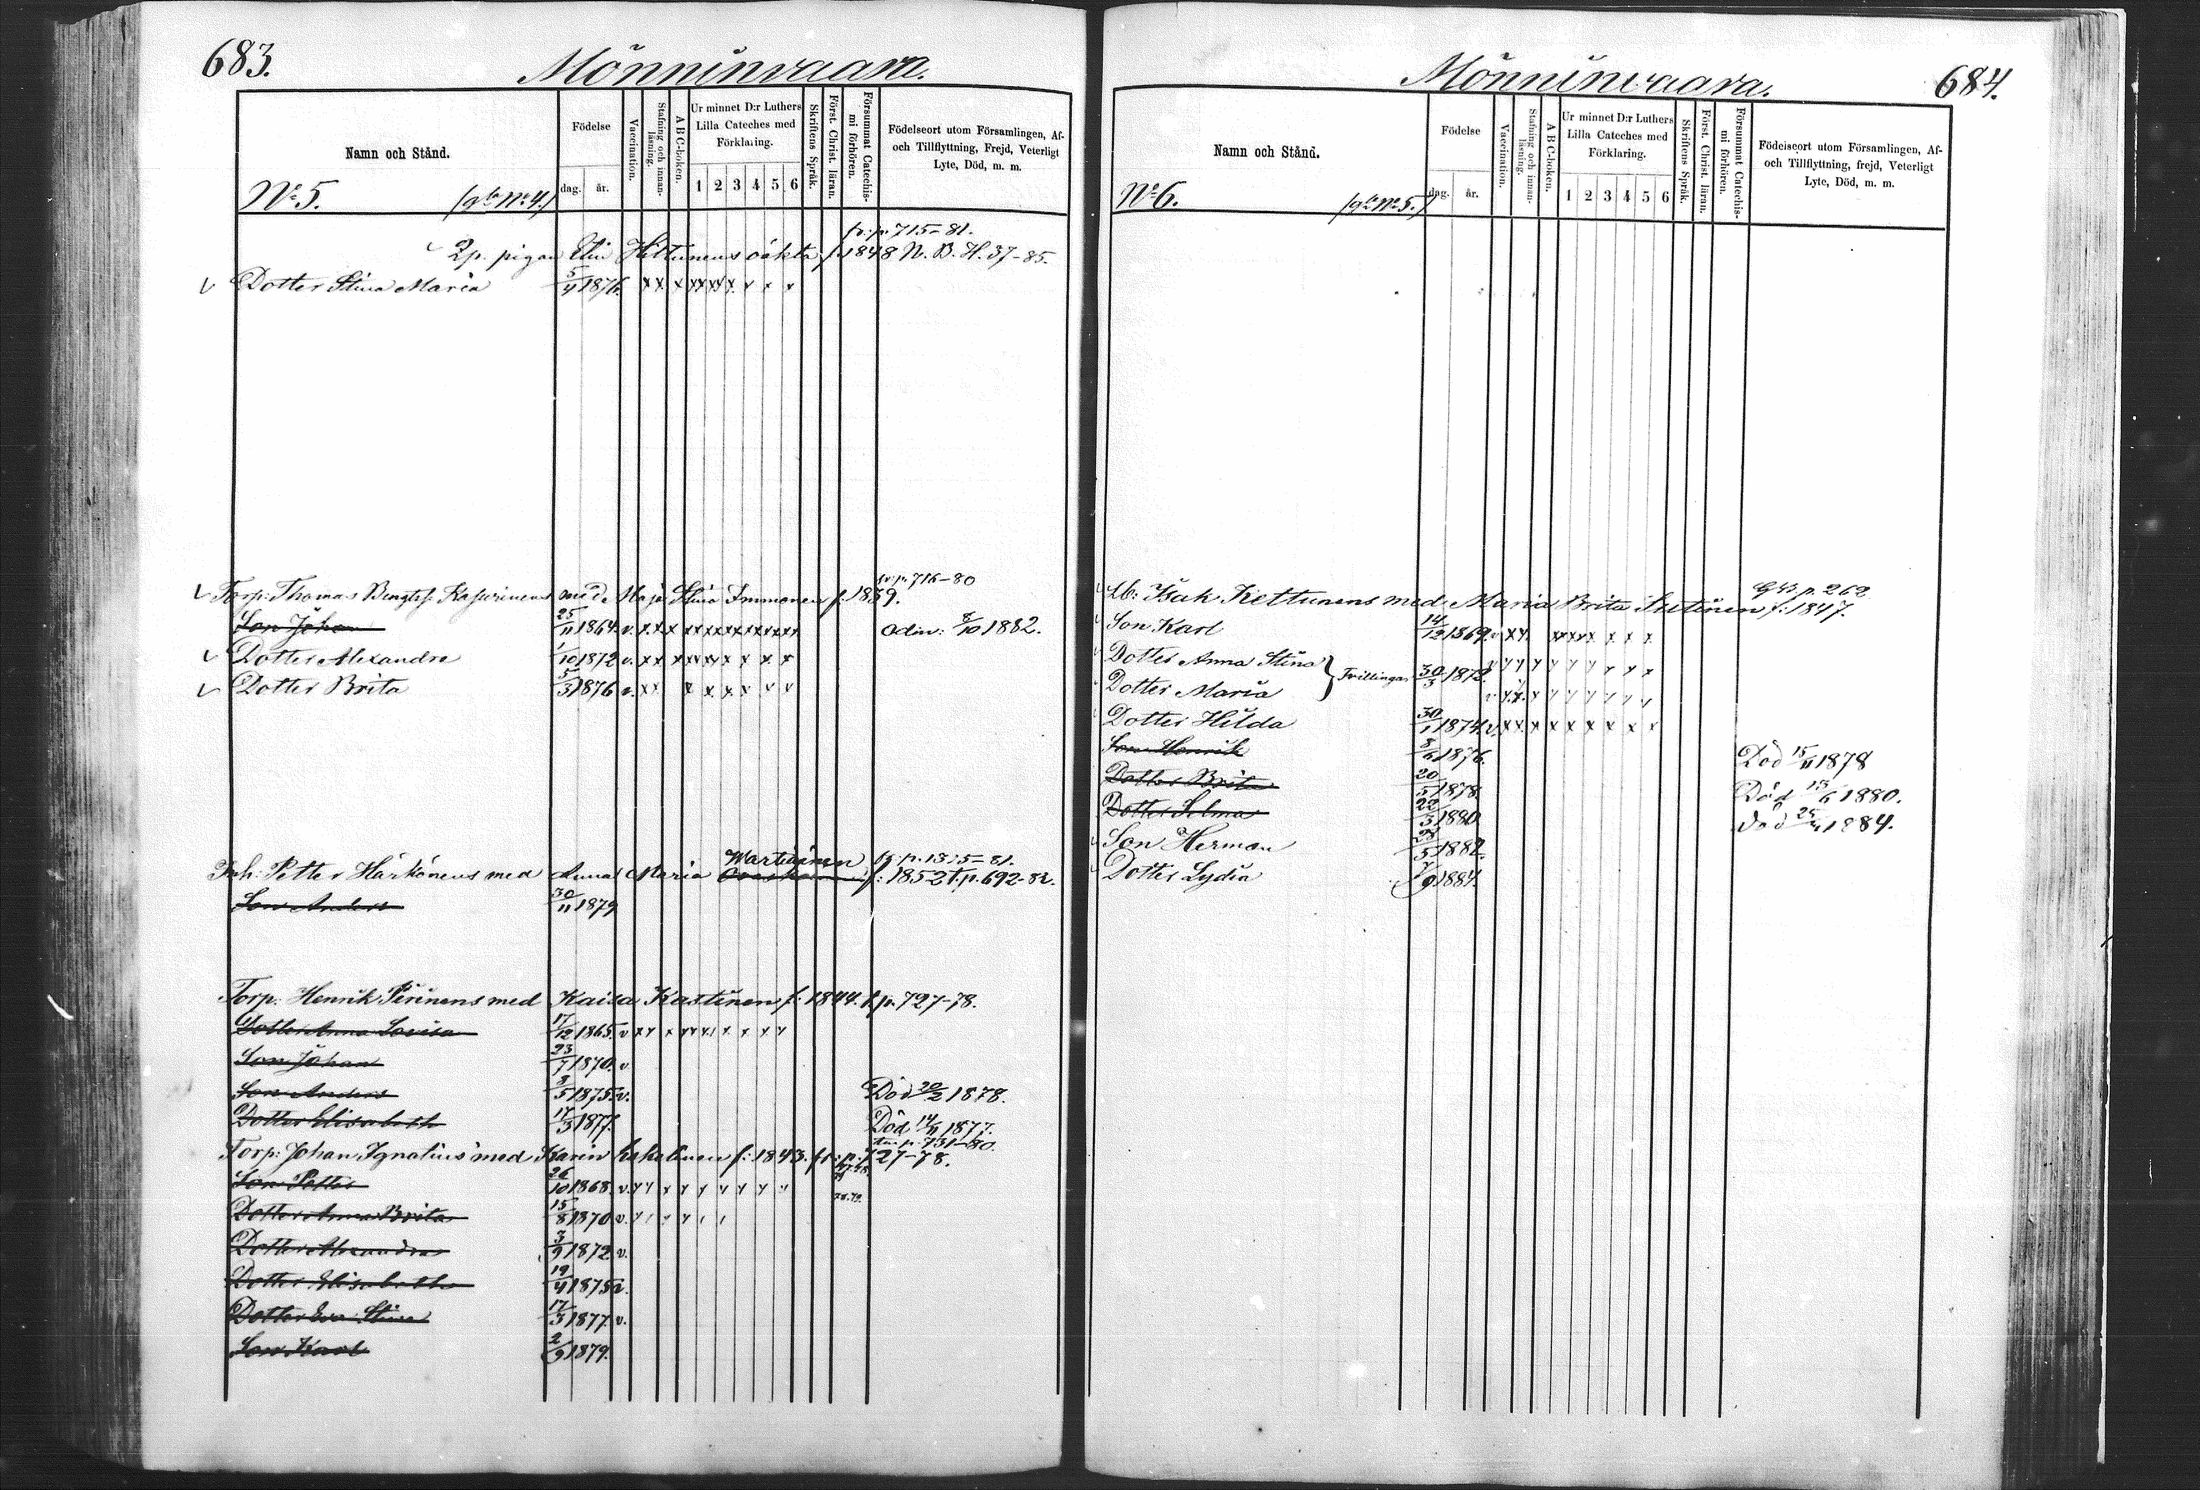 683.
Mönninvaara.
Namn och Stånd.
Födelse
dag. år.
Vaccination.
Stafning och innan-läsning.
A B C-boken.
Ur minnet D:r Luthers Lilla Cateches med Förklaring.
1 2 3 4 5 6
Skriftens Språk.
Först. Christ. läran.
Försummat Catechis-mi förhören.
Födelseort utom Församlingen, Af- och Tillflyttning, Frejd, Veterligt Lyte, Död, m. m.
No 5. /gla No 4./
fr: p. 715-81.
2p. pigan Elin Hiltunens oäkta f. 1848 N. B. H. 37-85.
Dotter Stina Maria 5/4 1876.
fr: p. 716-80
Torp: Thomas Bengtsf. Kasurinens med Maja Stina Immonen f. 1839.
Son Johan 25/11 1864. v. Adm: 8/10 1882.
Dotter Alexandra 1/10 1872 v.
Dotter Brita 5/3 1876 v.
Martikainen fr: p. 1315-81.
Inh: Petter Härkönens med Anna Maria f: 1852 t. p. 692-82.
Son Anders 30/11 1879
Torp: Henrik Piirinens med Kaisa Kastinen f: 1844. t. p. 727-78.
Dotter Anna Lovisa 17/12 1865. v
Son Johan 23/7 1870. v
Son Anders 3/5 1875. v. Död 20/2 1878.
Dotter Elisabeth 17/3 1877. Död 14/11 1877.
tu: p. 731-80.
Torp: Johan Ignatius med Karin f: 1843. fr: p. 727-78.
Son Petter 26/10 1868. v.
Dotter Anna Brita 15/8 1870 v.
Dotter Alexandra 3/9 1872 v.
Dotter Elisabeth 19/4 1875 v.
Dotter Eva Stina 17/3 1877. v.
Son Karl 2/9 1879.
Mönninvaara.
684.
Namn och Stånd.
Födelse
dag. år.
Vaccination.
Stafning och innan-läsning.
A B C-boken.
Ur minnet D:r Luthers Lilla Cateches med Förklaring.
1 2 3 4 5 6
Skriftens Språk.
Först. Christ. läran.
Försummat Catechis-mi förhören.
Födelseort utom Församlingen, Af- och Tillflyttning, frejd, Veterligt Lyte, Död, m. m.
No 6. /gla No 5./
p. 262
Isak Kettunens med Maria Brita f: 1847.
Son Karl 14/12 1869. v
Dotter Anna Stina
Tvillingar 30/3 1872.
Dotter Maria
Dotter Hilda 30/1 1874. v.
Son Henrik 8/6 1876. Död 15/11 1878
Dotter Brita 20/5 1878. Död 15/6 1880.
Dotter Selma 22/3 1880 Död 25/4 1884.
Son Herman 28/5 1882.
Dotter Lydia 7/9 1884.